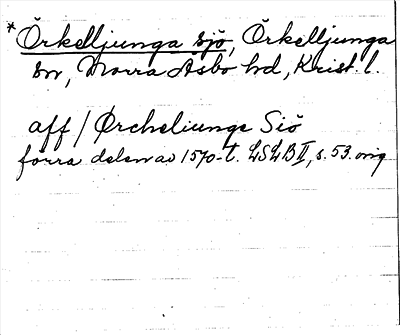 *Örkelljunga sjö, Örkelljunga
sn, Norra Åsbo hd, Krist. l.
aff / Ørcheliunge Siö
förra delen av 1570-t. LSLB II, s. 53. orig